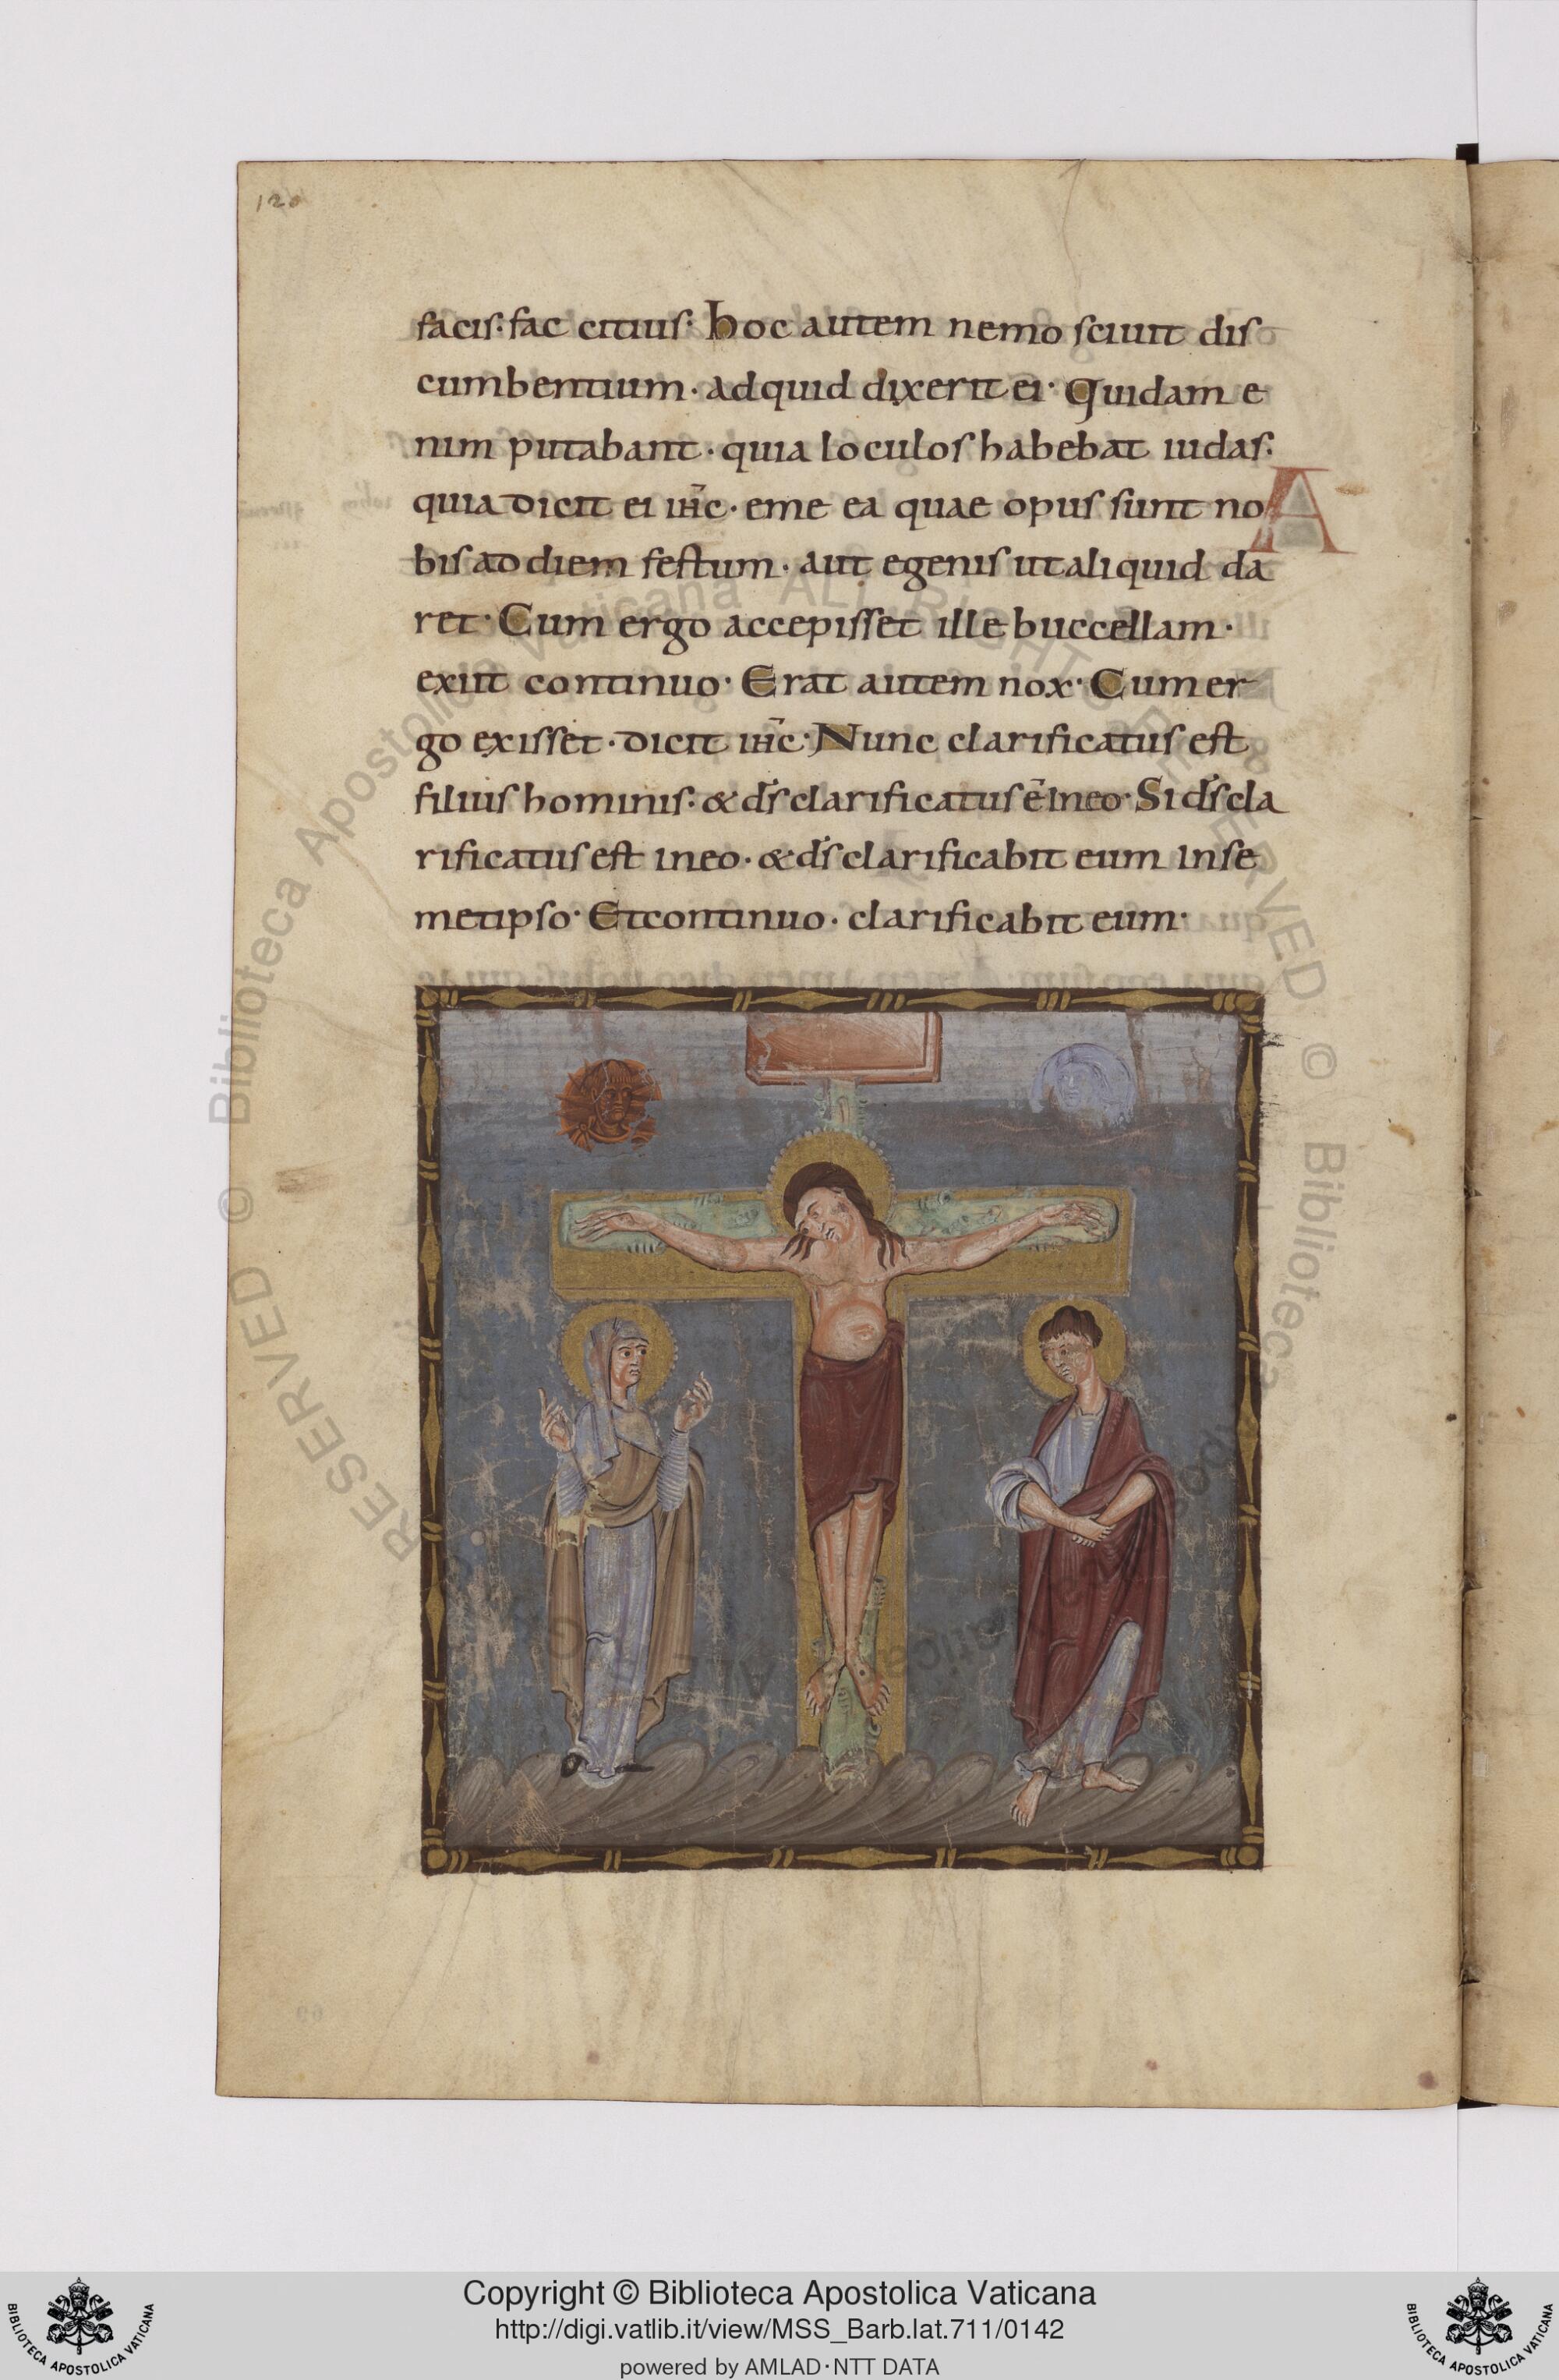 120
facis· fac citius· hoc autem nemo sciuit dis
cumbentium· ad quid dixerit ei· Quidam e
nim putabant· quia loculos habebat iudas·
quia dicit ei ihc̄· eme ea quae opus sunt no
A
bis ad diem festum· aut egenis ut aliquid da
ret· Cum ergo accepisset ille buccellam·
exiit continuo· Erat autem nox· Cum er
go exisset· dicit ihc̄· Nunc clarificatus est
filius hominis· & d̄s clarificatus ē in eo· Si d̄s cla
rificatus est in eo· & d̄s clarificabit eum in se
metipso· Et continuo· clarificabit eum·
© Biblioteca Apostolica Vaticana ALL RIGHTS RESERVED © Biblioteca Apostolica Vaticana ALL RIGHTS RESERVED
Copyright © Biblioteca Apostolica Vaticana
http://digi.vatlib.it/view/MSS_Barb.lat.711/0142
powered by AMLAD·NTT DATA
BIBLIOTECA APOSTOLICA VATICANA
BIBLIOTECA APOSTOLICA VATICANA